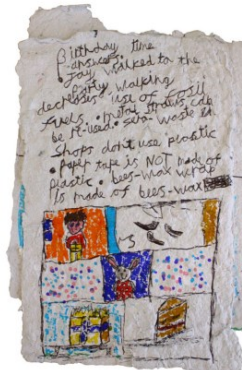 Birthday time
answers.
• Jay walked to the
party, walking
decreases use of fossil
fuels. • metal straws can
be re-used. • zero-waste
shops dont use plastic
• paper tape is NOT made of
plastic • bees-wax wrap
is made of bees-wax